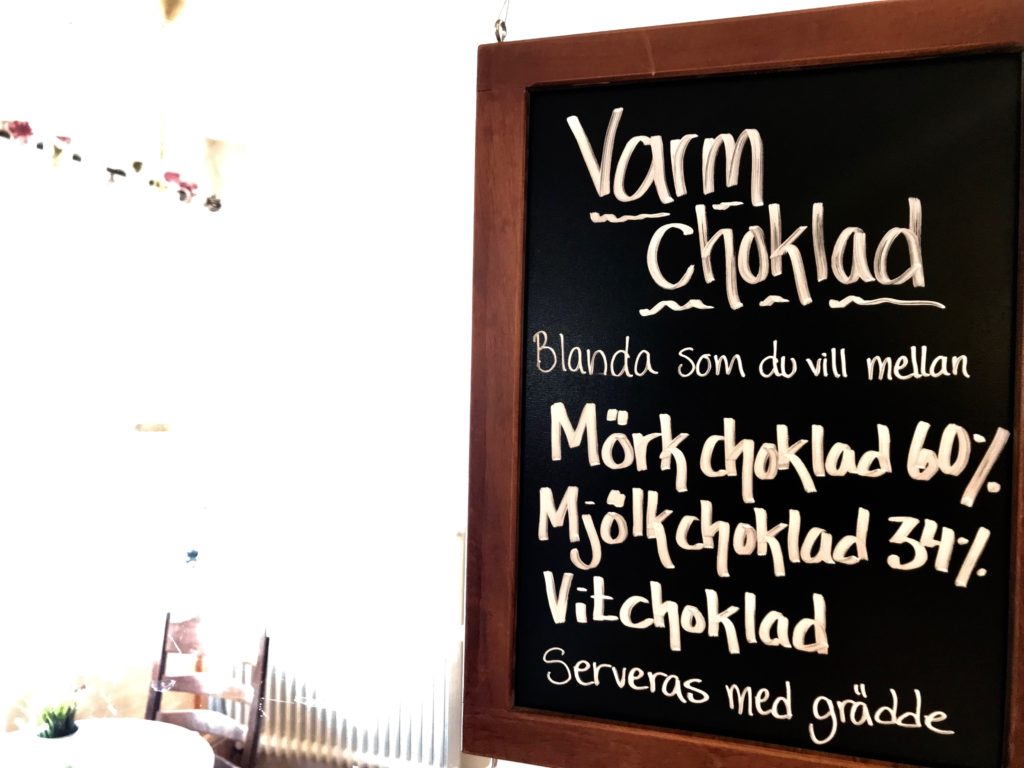 Varm
choklad
Blanda som du vill mellan
Mörk choklad 60%
Mjölkchoklad 34%
Vitchoklad
Serveras med grädde